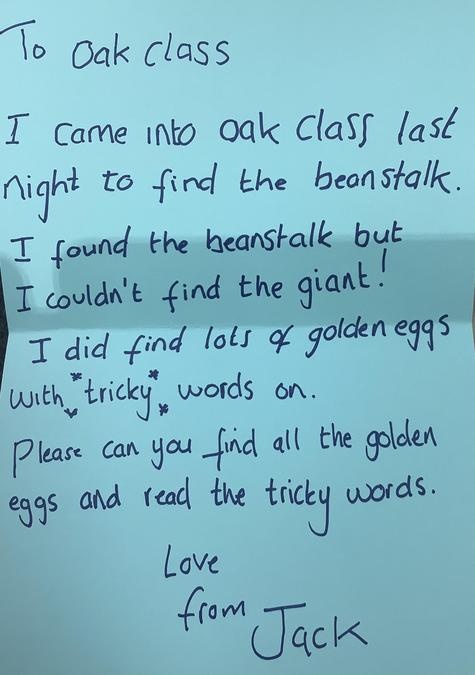 To Oak class
I came into oak class last
night to find the beanstalk.
I found the beanstalk but
I couldn't find the giant!
I did find lots of golden eggs
with *tricky* words on.
Please can you find all the golden
eggs and read the tricky words.
Love
from Jack